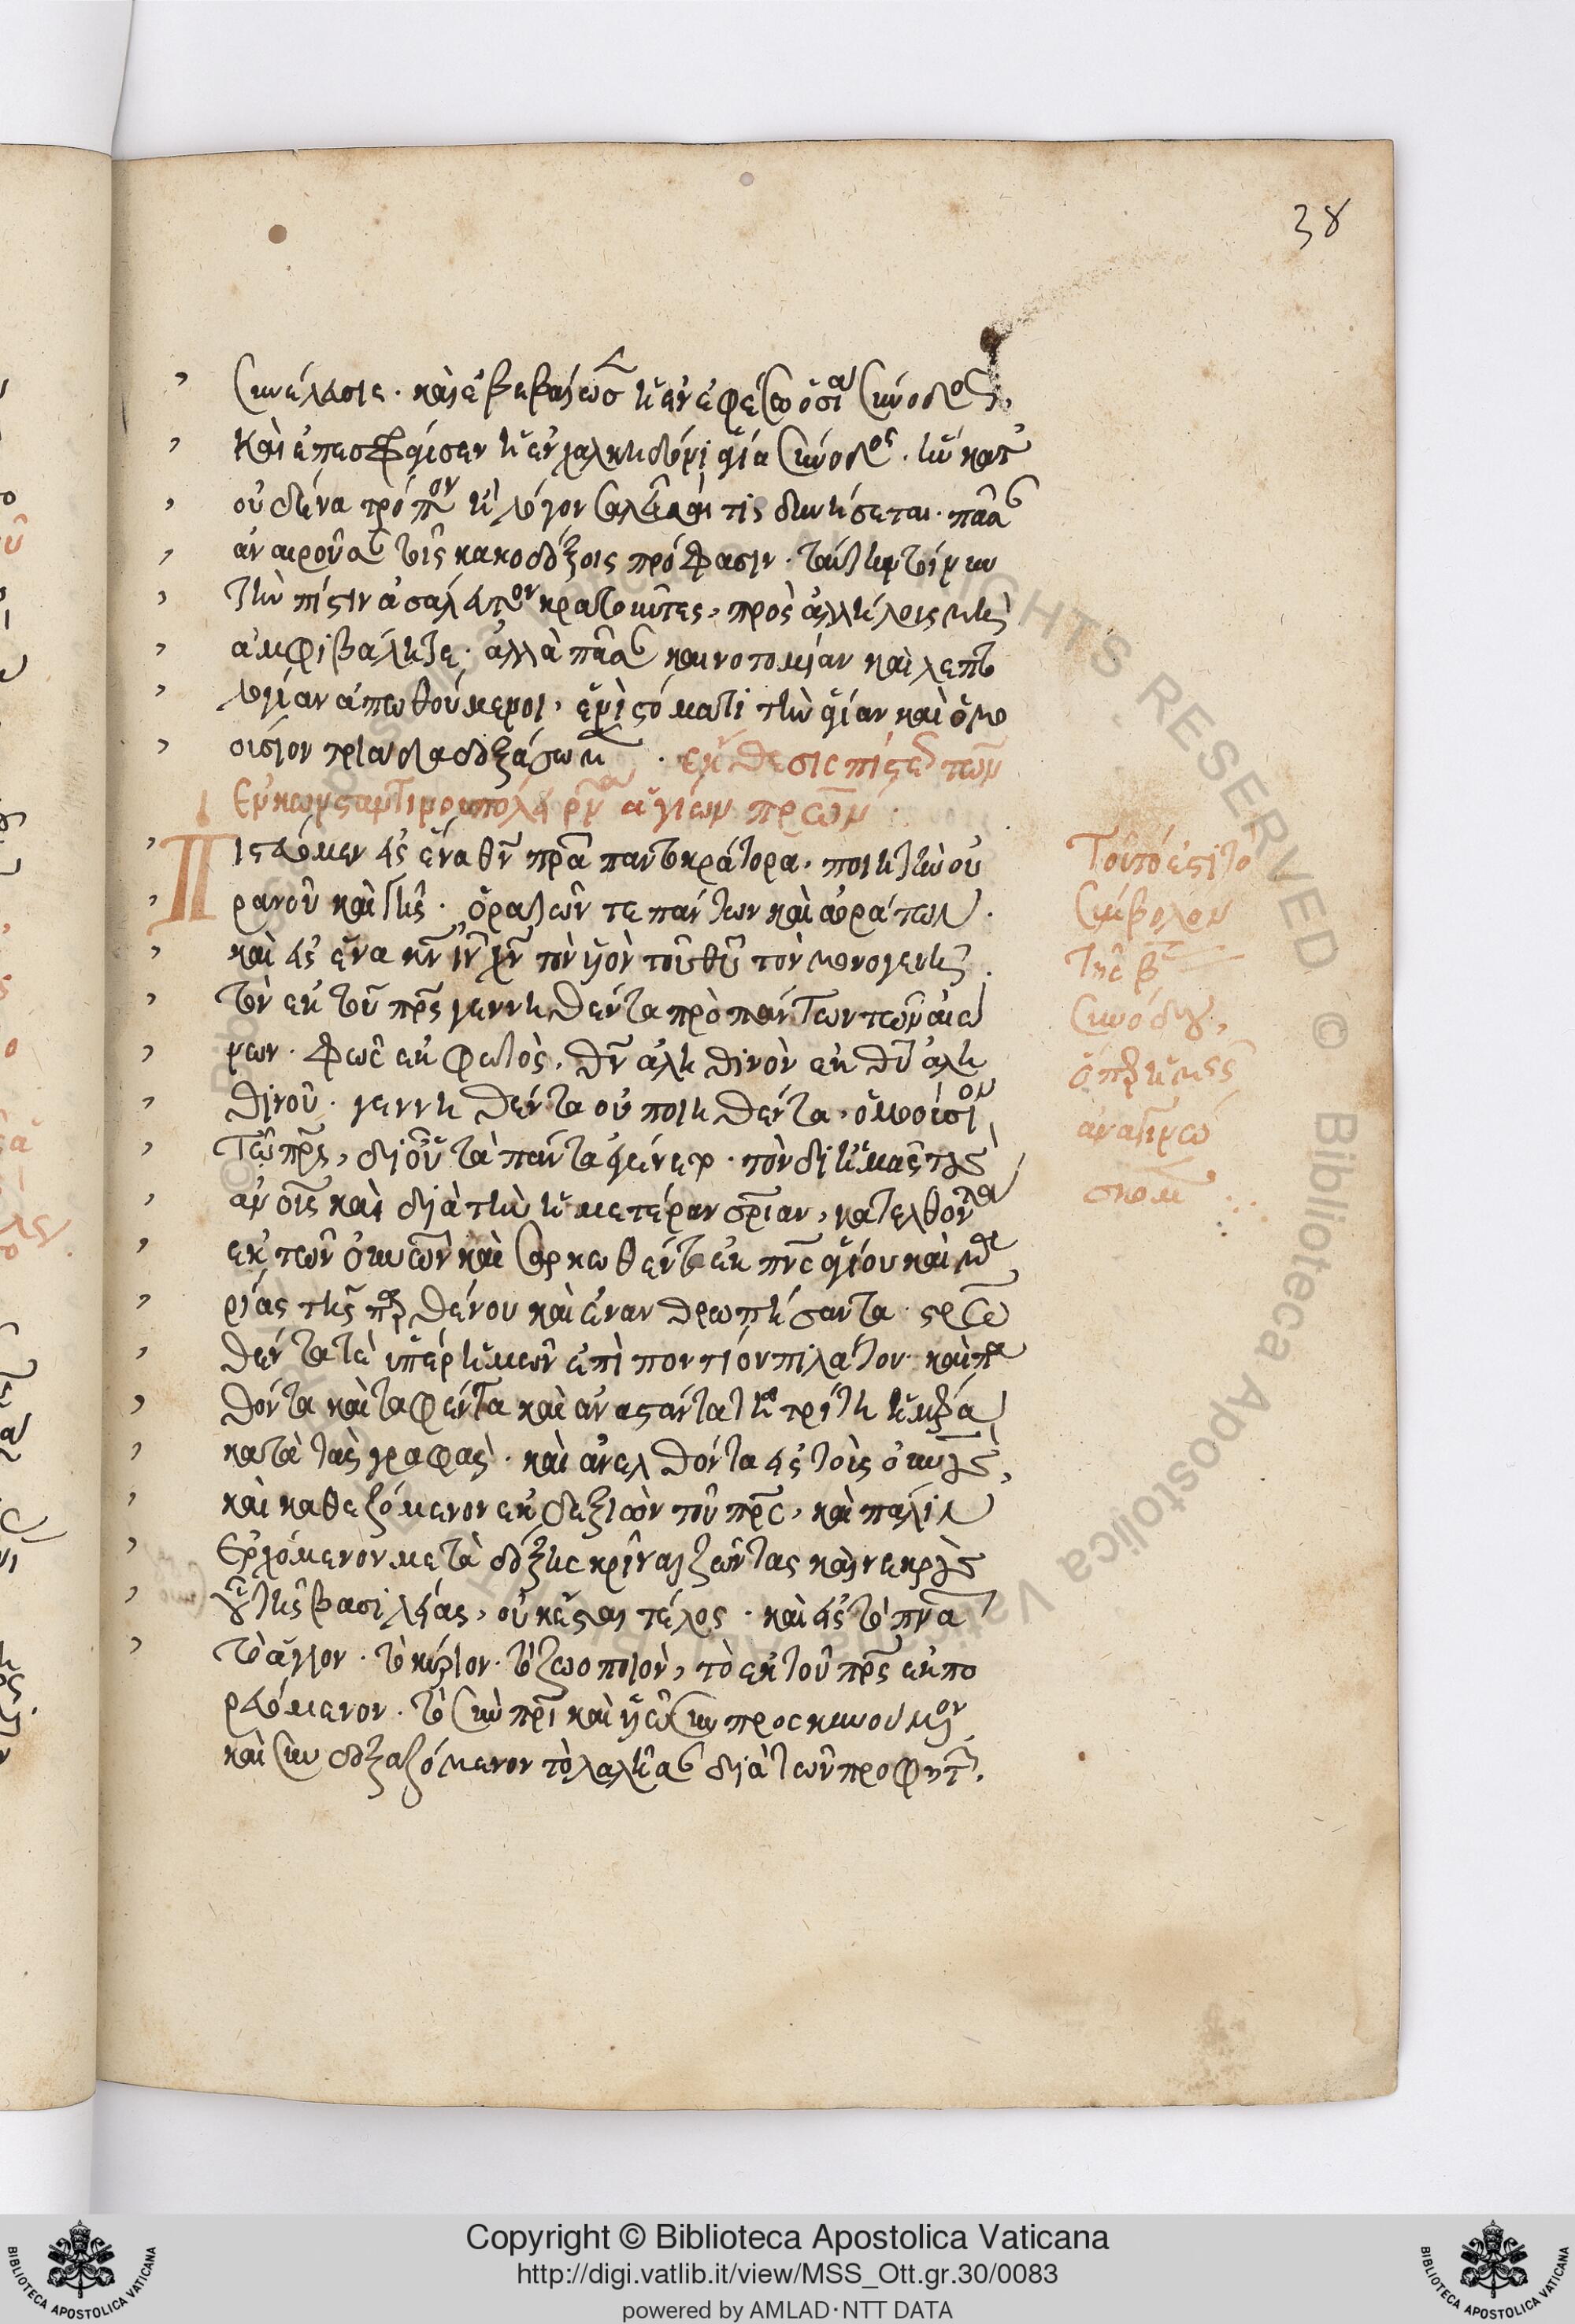 38
συνέλασιε. καὶ ἐβεβαίωσ ἡ ἐν ἐφέσω ὁσία σύνοδος,
Καὶ ἐπεσφράγισεν ἡ ἐν χαλκηδόνι ἁγία σύνοδος. ἣν κατ'
οὐδένα τρόπον ἢ λόγον σαλεῦσαι τίς δυνήσεται. πᾶσαν
ἀναιροῦσαν τοῖς κακοδόξοις πρόφασιν. ταύτην τοίνυν
τὴν πίστιν ἀσάλευτον κρατοῦντες, πρὸς ἀλλήλοις μὴ
ἀμφιβάλητε. ἀλλὰ πᾶσαν καινοτομίαν καὶ λεπτο
λογίαν ἀπωθούμενοι, ἑνὶ στόματι τὴν ἁγίαν καὶ ὁμο
ούσιον τριάδα δοξάσωμ . ἔκθεσις πίστε τῶν
Ἐν κωνσταντινουπόλει ρν ἁγίων πρων
Πιστεύομεν εἰς ἕνα θν πρα παντοκράτορα. ποιητὴν οὐ
ρανοῦ καὶ γῆς. ὁρατῶν τε πάντων καὶ ἀοράτων.
καὶ εἰς ἕνα κν ιν χν τὸν υἱὸν τοῦ θυ τὸν μονογενῆ.
τὸν ἐκ τοῦ πρς γεννηθέντα πρὸ πάντων τῶν αἰώ
νων. φῶς ἐκ φωτὸς, θν ἀληθινὸν ἐκ θυ ἀλη
θινοῦ. γεννηθέντα οὐ ποιηθέντα, ὁμοούσιον
τῶ πρς, δι' οὗ τὰ πάντα ἐγένετο. τὸν δι' ἡμᾶς τοὺς
ανους καὶ διὰ τὴν ἡμετέραν σριαν, κατελθόντα
ἐκ τῶν οὐνων καὶ σαρκωθέντα ἐκ πνς ἁγίου καὶ μα
ρίας τῆς παρθένου καὶ ἐνανθρωπήσαντα. σρω
θέντα τὲ ὑπὲρ ἡμῶν ἐπὶ ποντίου πιλάτου. καὶ πα
θόντα καὶ ταφέντα καὶ ἀναστάντα τῆ τρίτη ἡμέρα
κατὰ τὰς γραφάς. καὶ ἀνελθόντα εἰς τοὺς οὐνους,
καὶ καθεζόμενον ἐκ δεξιῶν τοῦ πρς, καὶ πάλιν
Ἐρχόμενον μετὰ δόξης κρῖναι ζῶντας καὶ νεκροὺς
οὗ τῆς βασιλείας, οὐκ ἔσται τέλος. καὶ εἰς τὸ πνα
τὸ ἅγιον. τὸ κύριον. τὸ ζωοποιὸν, τὸ ἐκ τοῦ πρς ἐκπο
ρευόμενον. τὸ σὺν πρι καὶ υἱῶ συμπροσκυνούμενον
καὶ συνδοξαζόμενον τὸ λαλῆσαν διὰ τῶν προφητ.
Τοῦτό ἐστι τὸ
σύμβολον
τῆς β
συνόδου,
ὅπερ ἡμεῖς
ἀναγινώ
σκομ
Copyright © Biblioteca Apostolica Vaticana
http://digi.vatlib.it/view/MSS_Ott.gr.30/0083
powered by AMLAD·NTT DATA